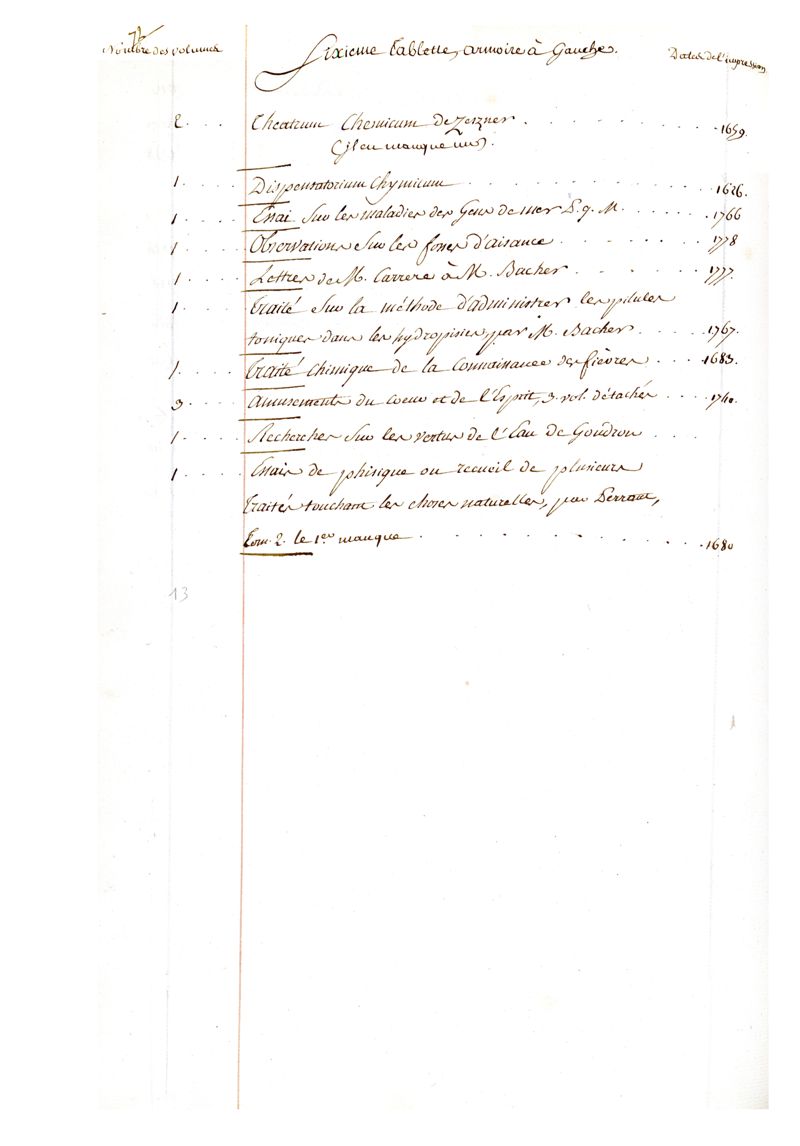 72
Nombre des volumes
Sixieme Tablette, armoire à Gauche.
Dates de l'impression
2 . . . Theatrum Chemicum de Zerzner . . . . . . . . 1659.
(il en manque un).
1 . . . . Dispensatorium Chymicum . . . . . . . . . . 1626.
1 . . . . Essai sur les maladies des Gens de mer P. q. M. . . . . . . 1766
1 . . . . Observations sur les fosses d'aisance . . . . . . . . 1778
1 . . . . Lettres de M. Carrere à M. Bacher . . . . . . 1777.
1 . . . . Traité sur la méthode d'administrer les pilules
toniques dans les hydropisies, par M. Bacher . . . . . 1767.
1. . . . . Traité chimique de la connaissance des fièvres . . . 1683.
3 . . . . amusements du coeur et de l'Esprit, 3. vol. détachés . . . . 1740.
1 . . . . Recherches sur les vertus de l'Eau de Goudron . . .
1 . . . . Essais de phisique ou recueil de plusieurs
traités touchant les choses naturelles, par Perraut,
tom. 2. le 1er manque . . . . . . . . . . 1680
13